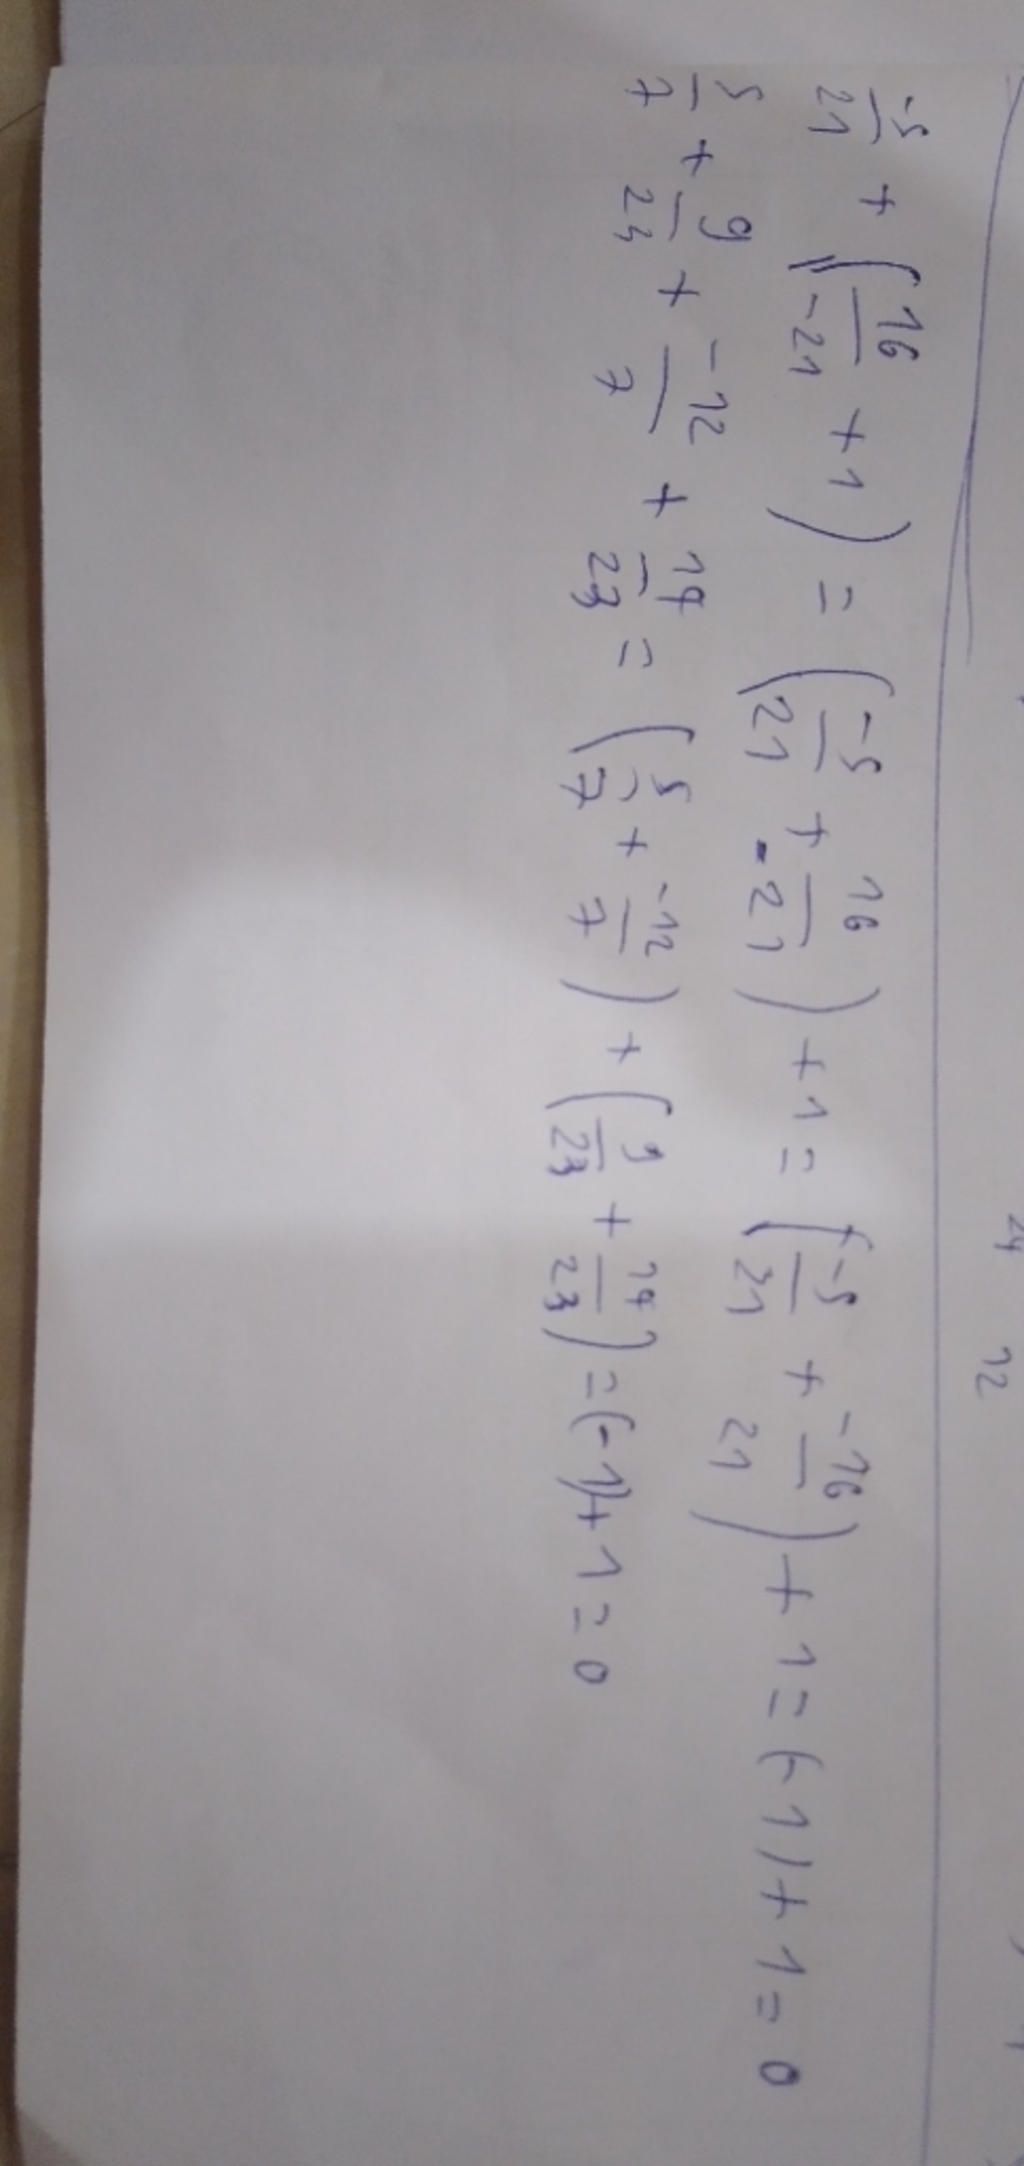 -5/21 + (16/-21 + 1) = (-5/21 + 16/-21) + 1 = (-5/21 + -16/21) + 1 = (-1) + 1 = 0
5/7 + 9/23 + -12/7 + 14/23 = (5/7 + -12/7) + (9/23 + 14/23) = (-1) + 1 = 0
24 12